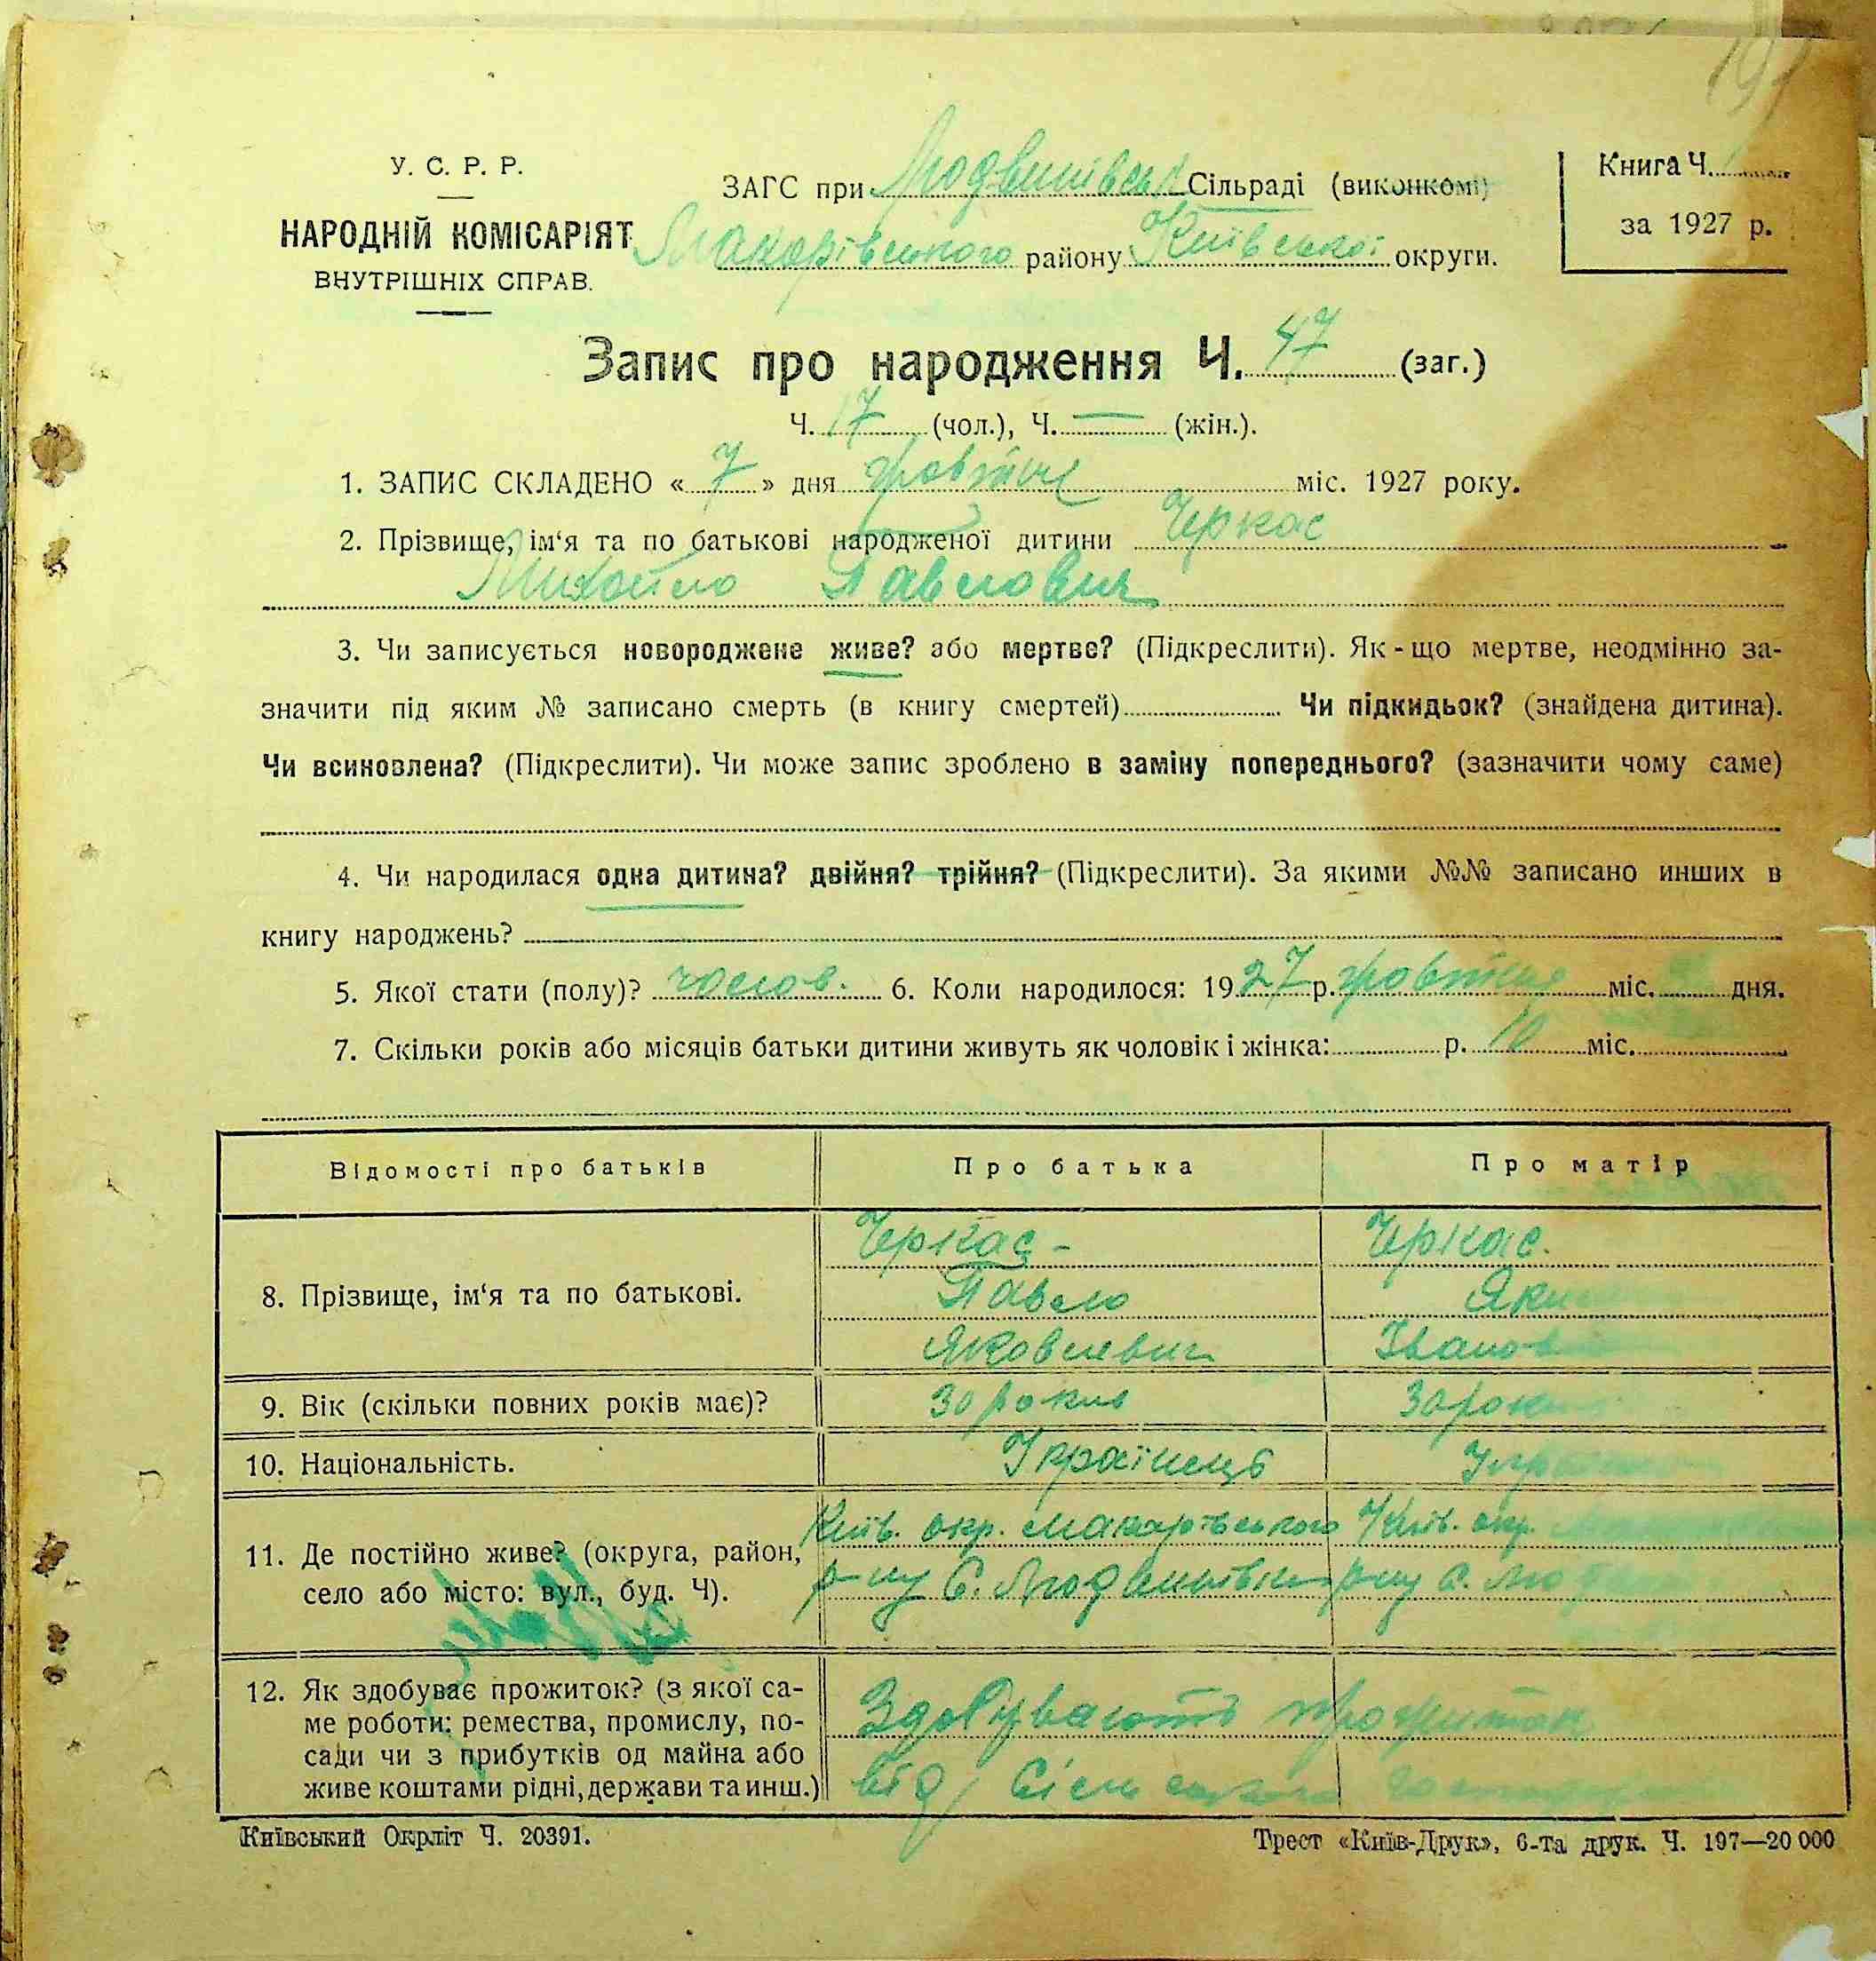 197
У. С. Р. Р.
НАРОДНІЙ КОМІСАРІЯТ
ВНУТРІШНІХ СПРАВ.
ЗАГС при Людвинівські Сільраді (виконкомі)
Макарівського району Київської округи.
Книга Ч.
за 1927 р.
Запис про народження Ч. 47 (заг.)
Ч. 17 (чол.), Ч. — (жін.).
1. ЗАПИС СКЛАДЕНО « 7 » дня жовтня міс. 1927 року.
2. Прізвище, ім‘я та по батькові народженої дитини Черкас
Михайло Павлович
3. Чи записується новороджене живе? або мертве? (Підкреслити). Як-що мертве, неодмінно за-
значити під яким № записано смерть (в книгу смертей) Чи підкидьок? (знайдена дитина).
Чи всиновлена? (Підкреслити). Чи може запис зроблено в заміну попереднього? (зазначити чому саме)
4. Чи народилася одна дитина? двійня? трійня? (Підкреслити). За якими №№ записано инших в
книгу народжень?
5. Якої стати (полу)? чолов. 6. Коли народилося: 1927 р. жовтня міс. дня.
7. Скільки років або місяців батьки дитини живуть як чоловік і жінка: р. 10 міс.
Відомості про батьків Про батька Про матір
8. Прізвище, ім‘я та по батькові.
Черкас - Черкас.
Павло
Яковлевич Іванов
9. Вік (скільки повних років має)? 30 роки 30 роки
10. Національність. Українець
11. Де постійно живе? (округа, район,
село або місто: вул., буд. Ч).
Київ. окр. Макарівського Київ. окр.
р-ну С. Людвинівки р-ну с.
12. Як здобуває прожиток? (з якої са-
ме роботи: ремества, промислу, по-
сади чи з прибутків од майна або
живе коштами рідні, держави та инш.)
Здобувають прожиток
від Сільського
Київський Окрліт Ч. 20391.
Трест «Київ-Друк», 6-та друк. Ч. 197—20 000